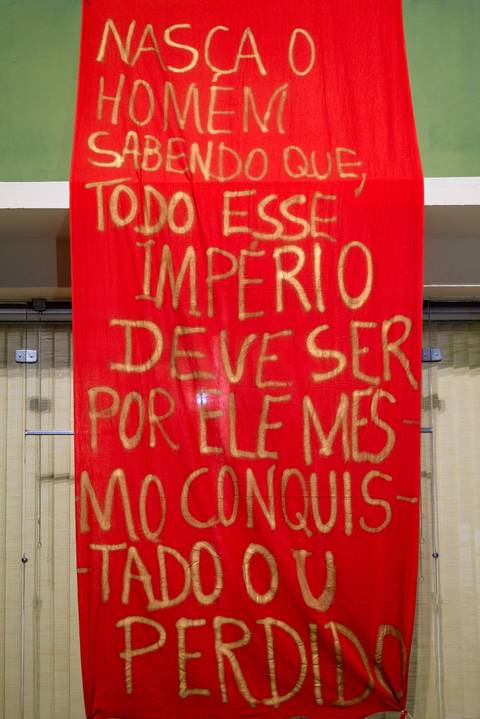 NASÇA O
HOMEM
SABENDO QUE,
TODO ESSE
IMPÉRIO
DEVE SER
POR ELE MES-
MO CONQUIS-
-TADO OU
PERDIDO